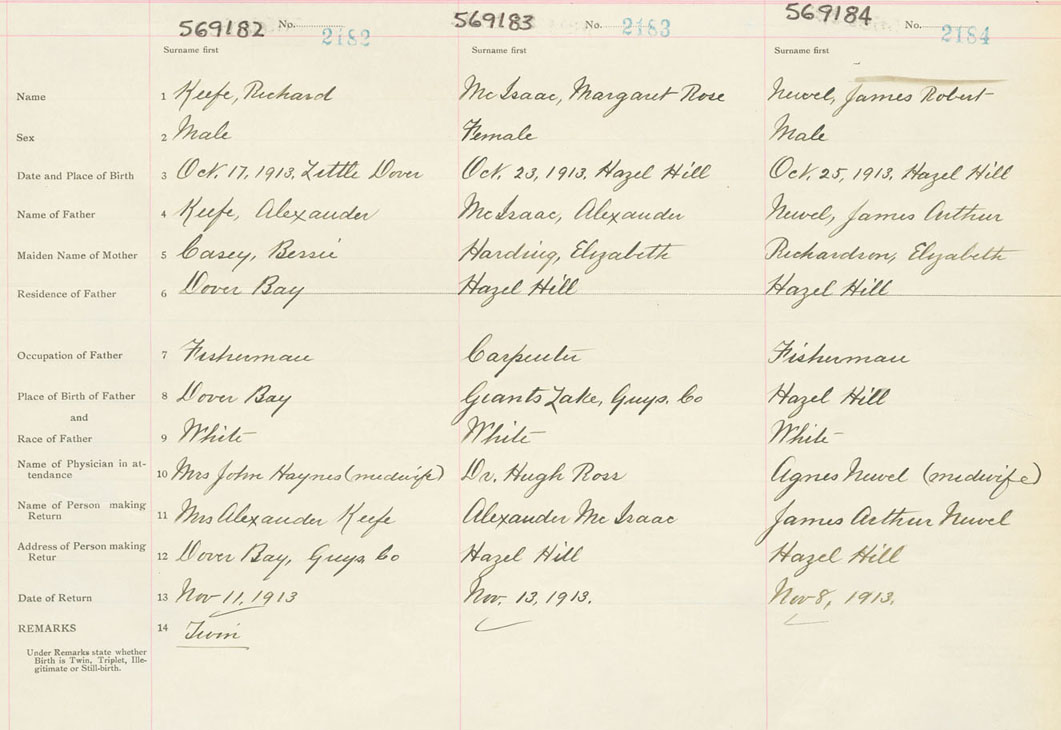 569182 No. 2182 569183 No. 2183 569184 No. 2184
Surname first Surname first Surname first
Name 1 Keefe, Richard McIsaac, Margaret Rose Newel, James Robert
Sex 2 Male Female Male
Date and Place of Birth 3 Oct. 17, 1913, Little Dover Oct. 23, 1913, Hazel Hill Oct. 25, 1913, Hazel Hill
Name of Father 4 Keefe, Alexander McIsaac, Alexander Newel, James Arthur
Maiden Name of Mother 5 Casey, Bessie Harding, Elizabeth Richardson, Elizabeth
Residence of Father 6 Dover Bay Hazel Hill Hazel Hill
Occupation of Father 7 Fisherman Carpenter Fisherman
Place of Birth of Father 8 Dover Bay Giants Lake, Guys. Co Hazel Hill
and
Race of Father 9 White White White
Name of Physician in at-
tendance 10 Mrs John Haynes (midwife) Dr. Hugh Ross Agnes Newel (midwife)
Name of Person making
Return 11 Mrs Alexander Keefe Alexander McIsaac James Arthur Newel
Address of Person making
Retur 12 Dover Bay, Guys. Co Hazel Hill Hazel Hill
Date of Return 13 Nov 11, 1913 Nov. 13, 1913. Nov 8, 1913.
REMARKS 14 Twin
Under Remarks state whether
Birth is Twin, Triplet, Ille-
gitimate or Still-birth.